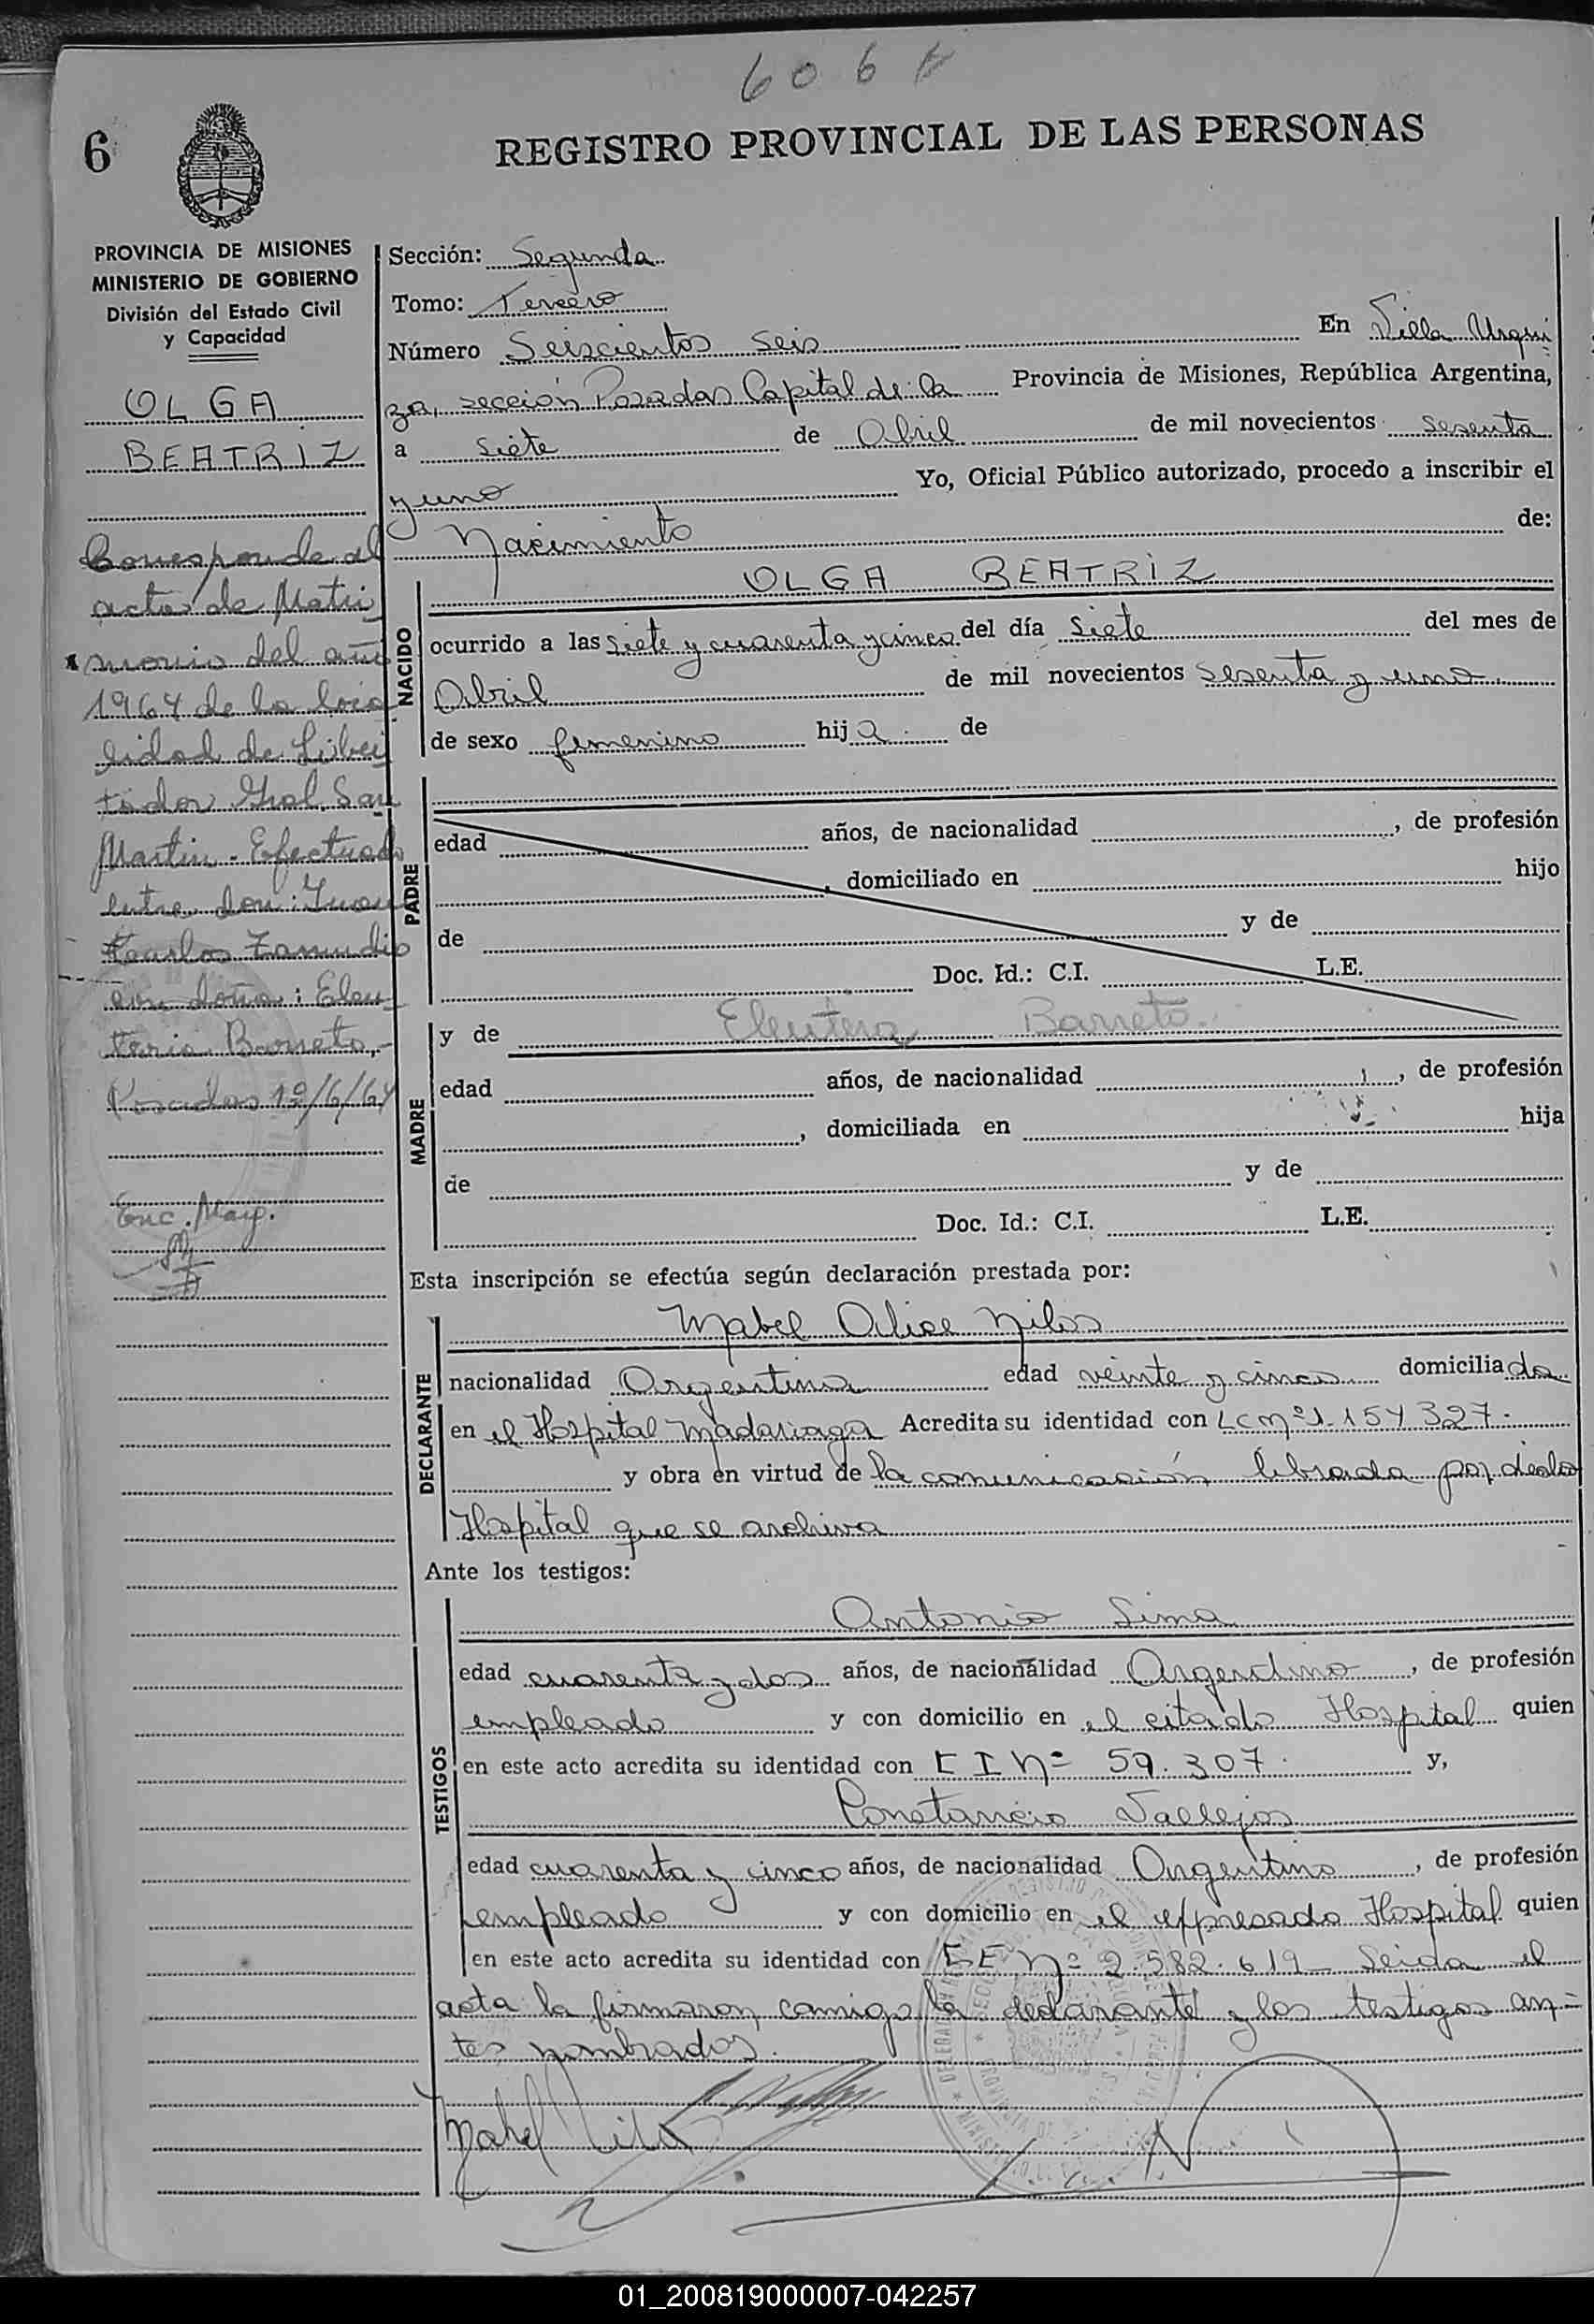 606
6
REGISTRO PROVINCIAL DE LAS PERSONAS
PROVINCIA DE MISIONES
MINISTERIO DE GOBIERNO
División del Estado Civil
y Capacidad
OLGA
BEATRIZ
Corresponde al
acta de Matri
monio del año
1964 de la loca
lidad de Liber
tador Gral. San
Martin - Efectuado
entre don: Juan
Carlos Zamudio
con doña: Eleu
teria Barreto,-
Posadas 12/6/64
Enc. Mayp.
Sección: Segunda
Tomo: Tercero
Número Seiscientos seis En Villa Urqui
za, sección Posadas Capital de la Provincia de Misiones, República Argentina,
a siete de Abril de mil novecientos sesenta
y uno Yo, Oficial Público autorizado, procedo a inscribir el
Nacimiento de:
NACIDO
OLGA BEATRIZ
ocurrido a las siete y cuarenta y cinco del día siete del mes de
Abril de mil novecientos sesenta y uno
de sexo femenino hija de
PADRE
edad años, de nacionalidad , de profesión
, domiciliado en hijo
de y de
Doc. Id.: C.I. L.E.
MADRE
y de Eleutera Barreto.
edad años, de nacionalidad , de profesión
, domiciliada en hija
de y de
Doc. Id.: C.I. L.E.
Esta inscripción se efectúa según declaración prestada por:
DECLARANTE
Mabel Alice Milos
nacionalidad Argentina edad veinte y cinco domiciliada
en el Hospital Madariaga Acredita su identidad con LC nº 1.154.327.
y obra en virtud de la comunicación librada por dicho
Hospital que se archiva
Ante los testigos:
TESTIGOS
Antonio Lima
edad cuarenta y dos años, de nacionalidad Argentino, de profesión
empleado y con domicilio en el citado Hospital quien
en este acto acredita su identidad con C I Nº 59.307. y,
Constancio Vallejos
edad cuarenta y cinco años, de nacionalidad Argentino, de profesión
empleado y con domicilio en el expresado Hospital quien
en este acto acredita su identidad con L E Nº 2.582.619 Leida el
acta la firmaron, conmigo la declarante y los testigos an=
tes nombrados.
Mabel Milos
01_200819000007-042257